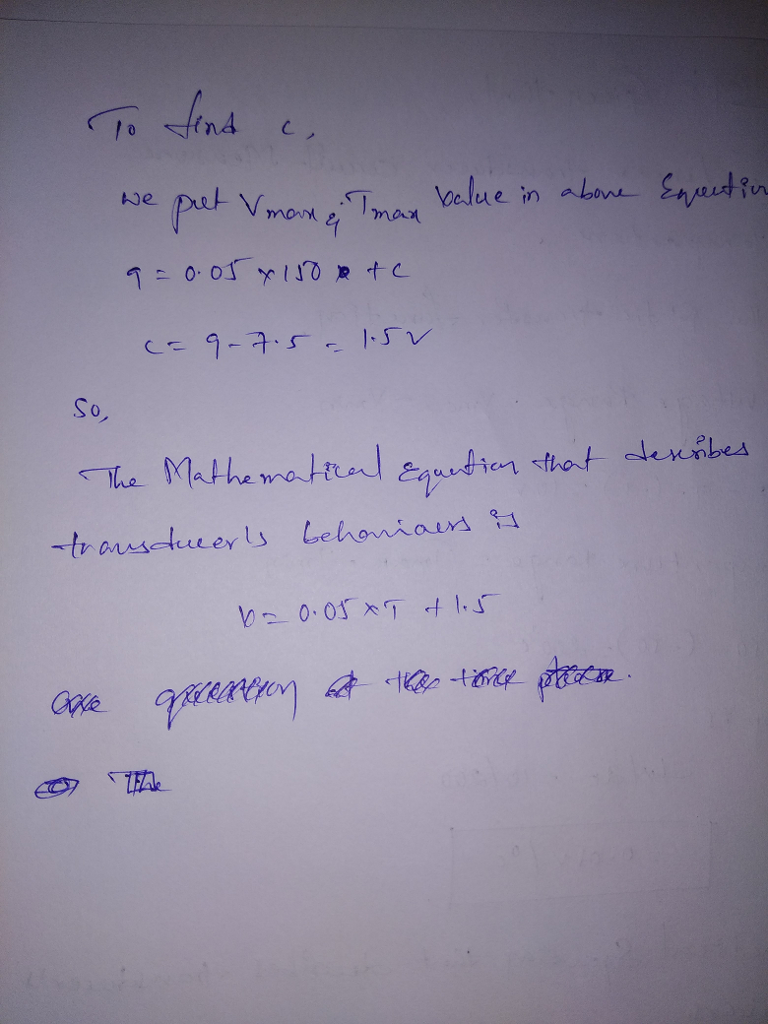 To find c,
we put Vmax & Tmax Value in above Equation
9 = 0.05 × 150 + c
c = 9 - 7.5 = 1.5 V
So,
The Mathematical Equation that describes
transducer's behaviours is
V = 0.05 × T + 1.5
The